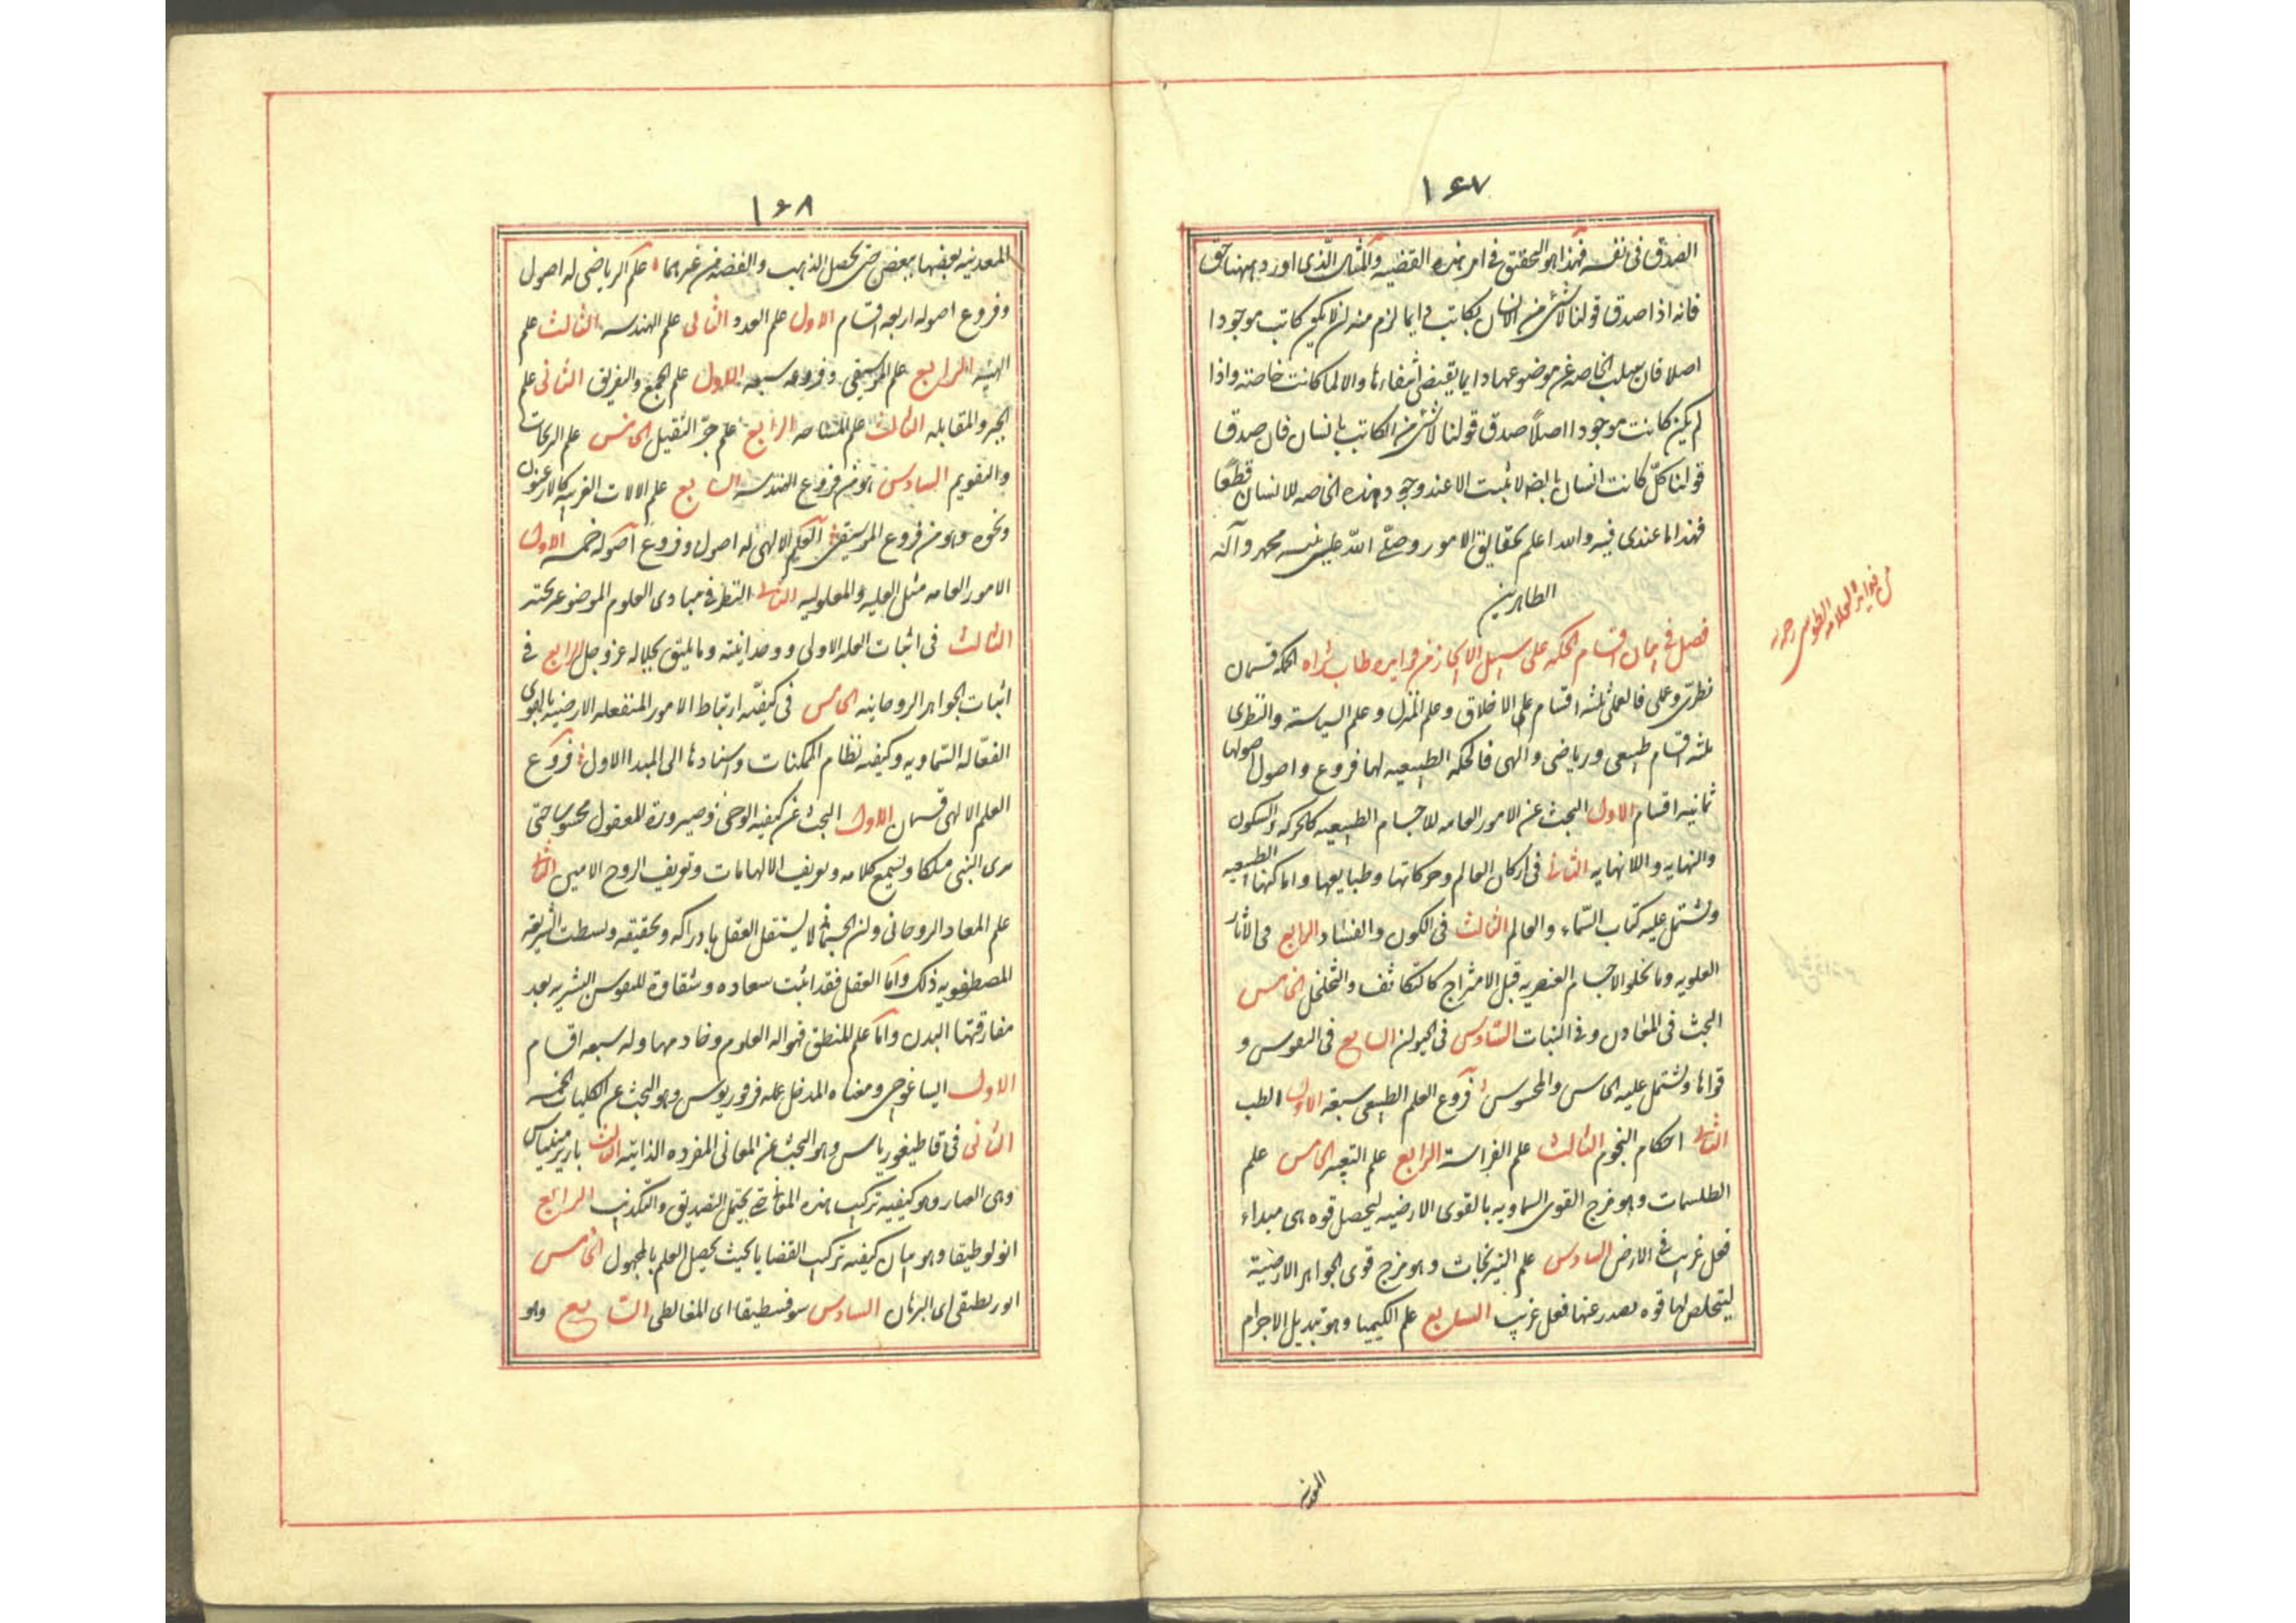 ۱۶۷
الصدق فی نفسه فهذا هو التحقیق فی امر هذه القضیه والمثال الّذی اورد ههنا حق
فانه اذا صدق قولنا لا شئ من الانسان بکاتب دایما لزم منه ان لا یکون کاتب موجودا
اصلا فان سلب الخاصه عن موضوعها دایما یقتضی انتفاءها والا لما کانت خاصته واذا
لم یکن کاتب موجودا اصلاً صدق قولنا لا شئ من الکاتب بانسان فان صدق
قولنا کلّ کاتب انسان بالضـ لا یثبت الا عند وجود هذه الخاصه للانسان قطعًا
فهذا ما عندی فیه والله اعلم بحقایق الامور وصلّی اللّه علی نبیه محمد وآله
الطاهرین
فصل فی بیان اقسام الحکمه علی سبیل الایجاز من فوایده طاب ثراه الحکمه قسمان
من فواید العلامه الطوسی رحمه
نظریّ وعملی فالعملی ثلثه اقسام علم الاخلاق وعلم المنزل وعلم السیاسته والنظری
ثلثه اقسام طبیعی وریاضی والهی فالحکمه الطبیعیه لها فروع واصول اصولها
ثمانیه اقسام الاول البحث عن الامور العامه للاجسام الطبیعیه کالحرکه والسکون
والنهایه واللانهایه الثانی فی ارکان العالم وحرکاتها وطبایعها واماکنها الطبیعیه
وتشتمل علیه کتاب السّماء والعالم الثالث فی الکون والفساد الرابع فی الاثار
العلویه وما یخلو الاجسام العنصریه قبل الامتزاج کالتکاثف والتخلخل الخامس
البحث فی المعادن وفی النبات السّادس فی الحیوان السابع فی النفوس و
قواها وتشتمل علیه الحاس والمحسوس فروع العلم الطبیعی سبعه الاول الطب
الثانی احکام النجوم الثالث علم الفراسة الرابع علم التعبیر الخامس علم
الطلسمات وهو مزج القوی السماویه بالقوی الارضیه لیحصل قوه هی مبداء
فعل غریب فی الارض السادس علم النیرنجات وهو مزج قوی الجواهر الارضیّة
لیتخلص لها قوه یصدر عنها فعل غریب السابع علم الکیمیا وهو تبدیل الاجرام
المعدنیه
۱۶۸
المعدنیه بعضها ببعض حتی یحصل الذهب والفضه من غیرهما علم الریاضی له اصول
وفروع اصوله اربعه اقسام الاول علم العدد الثانی علم الهندسه الثالث علم
الهیئه الرابع علم الموسیقی وفروعه سبعه الاول علم الجمع والتفریق الثانی علم
الجبر والمقابله الثالث علم المساحه الرابع علم جرّ الثقیل الخامس علم الزیجات
والتقویم السادس هو من فروع الهندسه السابع علم الالات الغریبه کالارغنون
ونحوه وهو من فروع الموسیقی العلم الالهی له اصول وفروع اصوله خمسه الاول
الامور العامه مثل العلیه والمعلولیه الثانی النظر فی مبادی العلوم الموضوعه تحته
الثالث فی اثبات العله الاولی ووحدانیته وما یلیق بجلاله عزوجل الرابع فی
اثبات الجواهر الروحانیه الخامس فی کیفیّه ارتباط الامور المنفعله الارضیه بالقوی
الفعّاله السّماویه وکیفیه نظام الممکنات واسنادها الی المبدا الاول فروع
العلم الالهی قسمان الاول البحث عن کیفیه الوحی وصیرورة المعقول محسوسا حتی
یری النبی ملکا ویسمع کلامه وتعریف الالهامات وتعریف الروح الامین الثانی
علم المعاد الروحانی وان الجسمانی لا یستقل العقل بادراکه وتحقیقه وبسطت الشریعه
المصطفویه ذلک وامّا العقل فقد اثبت سعاده وشقاوة للنفوس البشریه بعد
مفارقتها البدن وامّا علم المنطق فهو اله العلوم وخادمها وله سبعه اقسام
الاول ایساغوجی ومعناه المدخل عمله فرفوریوس وهو البحث عن الکلیات الخمسه
الثانی فی قاطیغوریاس وهو البحث عن المعانی المفرده الذاتیه الثالث باریرمینیاس
وهی العباره وهو کیفیه ترکیب هذه المعانی حتی یحتمل التصدیق والتکذیب الرابع
انولوطیقا وهو بیان کیفیه ترکیب القضایا بحیث یحصل العلم بالمجهول الخامس
انوریطیقی ای البرهان السادس سوفسطیقا ای المغالطی السابع وهو